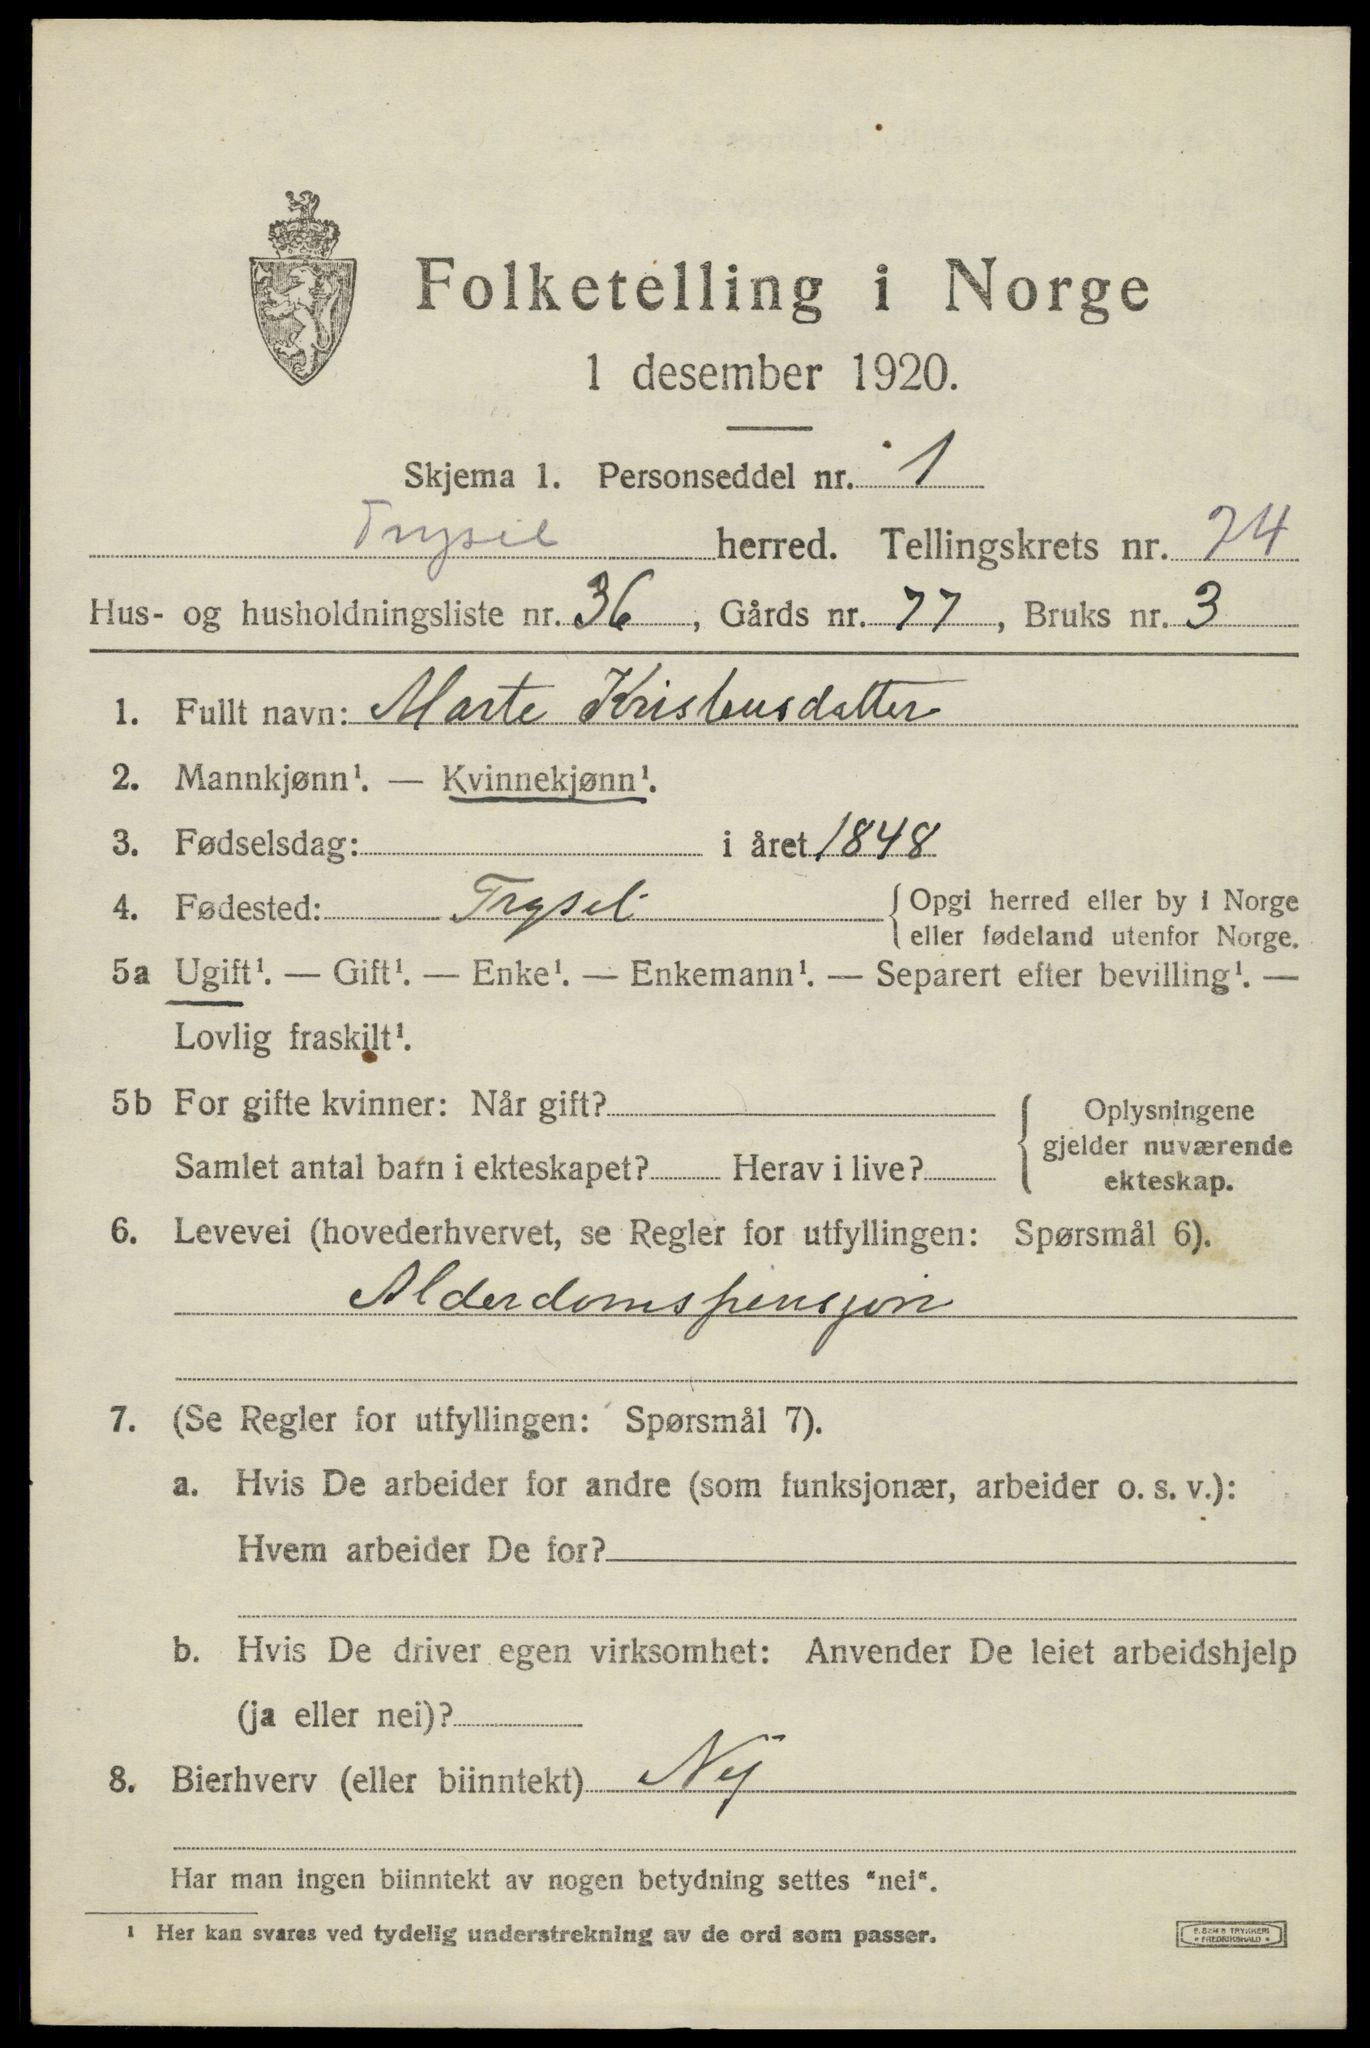 Folketelling i Norge
1 desember 1920.
Skjema 1. Personseddel nr. 1
Trysil herred. Tellingskrets nr. 24
Hus- og husholdningsliste nr. 36, Gårds nr. 77, Bruks nr. 3
1. Fullt navn: Marte Kristensdatter
2. Mannkjønn¹. — Kvinnekjønn¹.
3. Fødselsdag: i året 1848
4. Fødested: Trysil {Opgi herred eller by i Norge
eller fødeland utenfor Norge.
5a Ugift¹. — Gift¹. — Enke¹. — Enkemann¹. — Separert efter bevilling¹. —
Lovlig fraskilt¹.
5b For gifte kvinner: Når gift?
Samlet antal barn i ekteskapet? Herav i live?
{Oplysningene
gjelder nuværende
ekteskap.
6. Levevei (hovederhvervet, se Regler for utfyllingen: Spørsmål 6).
Alderdomspensjon
7. (Se Regler for utfyllingen: Spørsmål 7).
a. Hvis De arbeider for andre (som funksjonær, arbeider o. s. v.):
Hvem arbeider De for?
b. Hvis De driver egen virksomhet: Anvender De leiet arbeidshjelp
(ja eller nei)?
8. Bierhverv (eller biinntekt) Nej
Har man ingen biinntekt av nogen betydning settes "nei".
¹ Her kan svares ved tydelig understrekning av de ord som passer.
TRYKKERI
FREDRIKSHALD